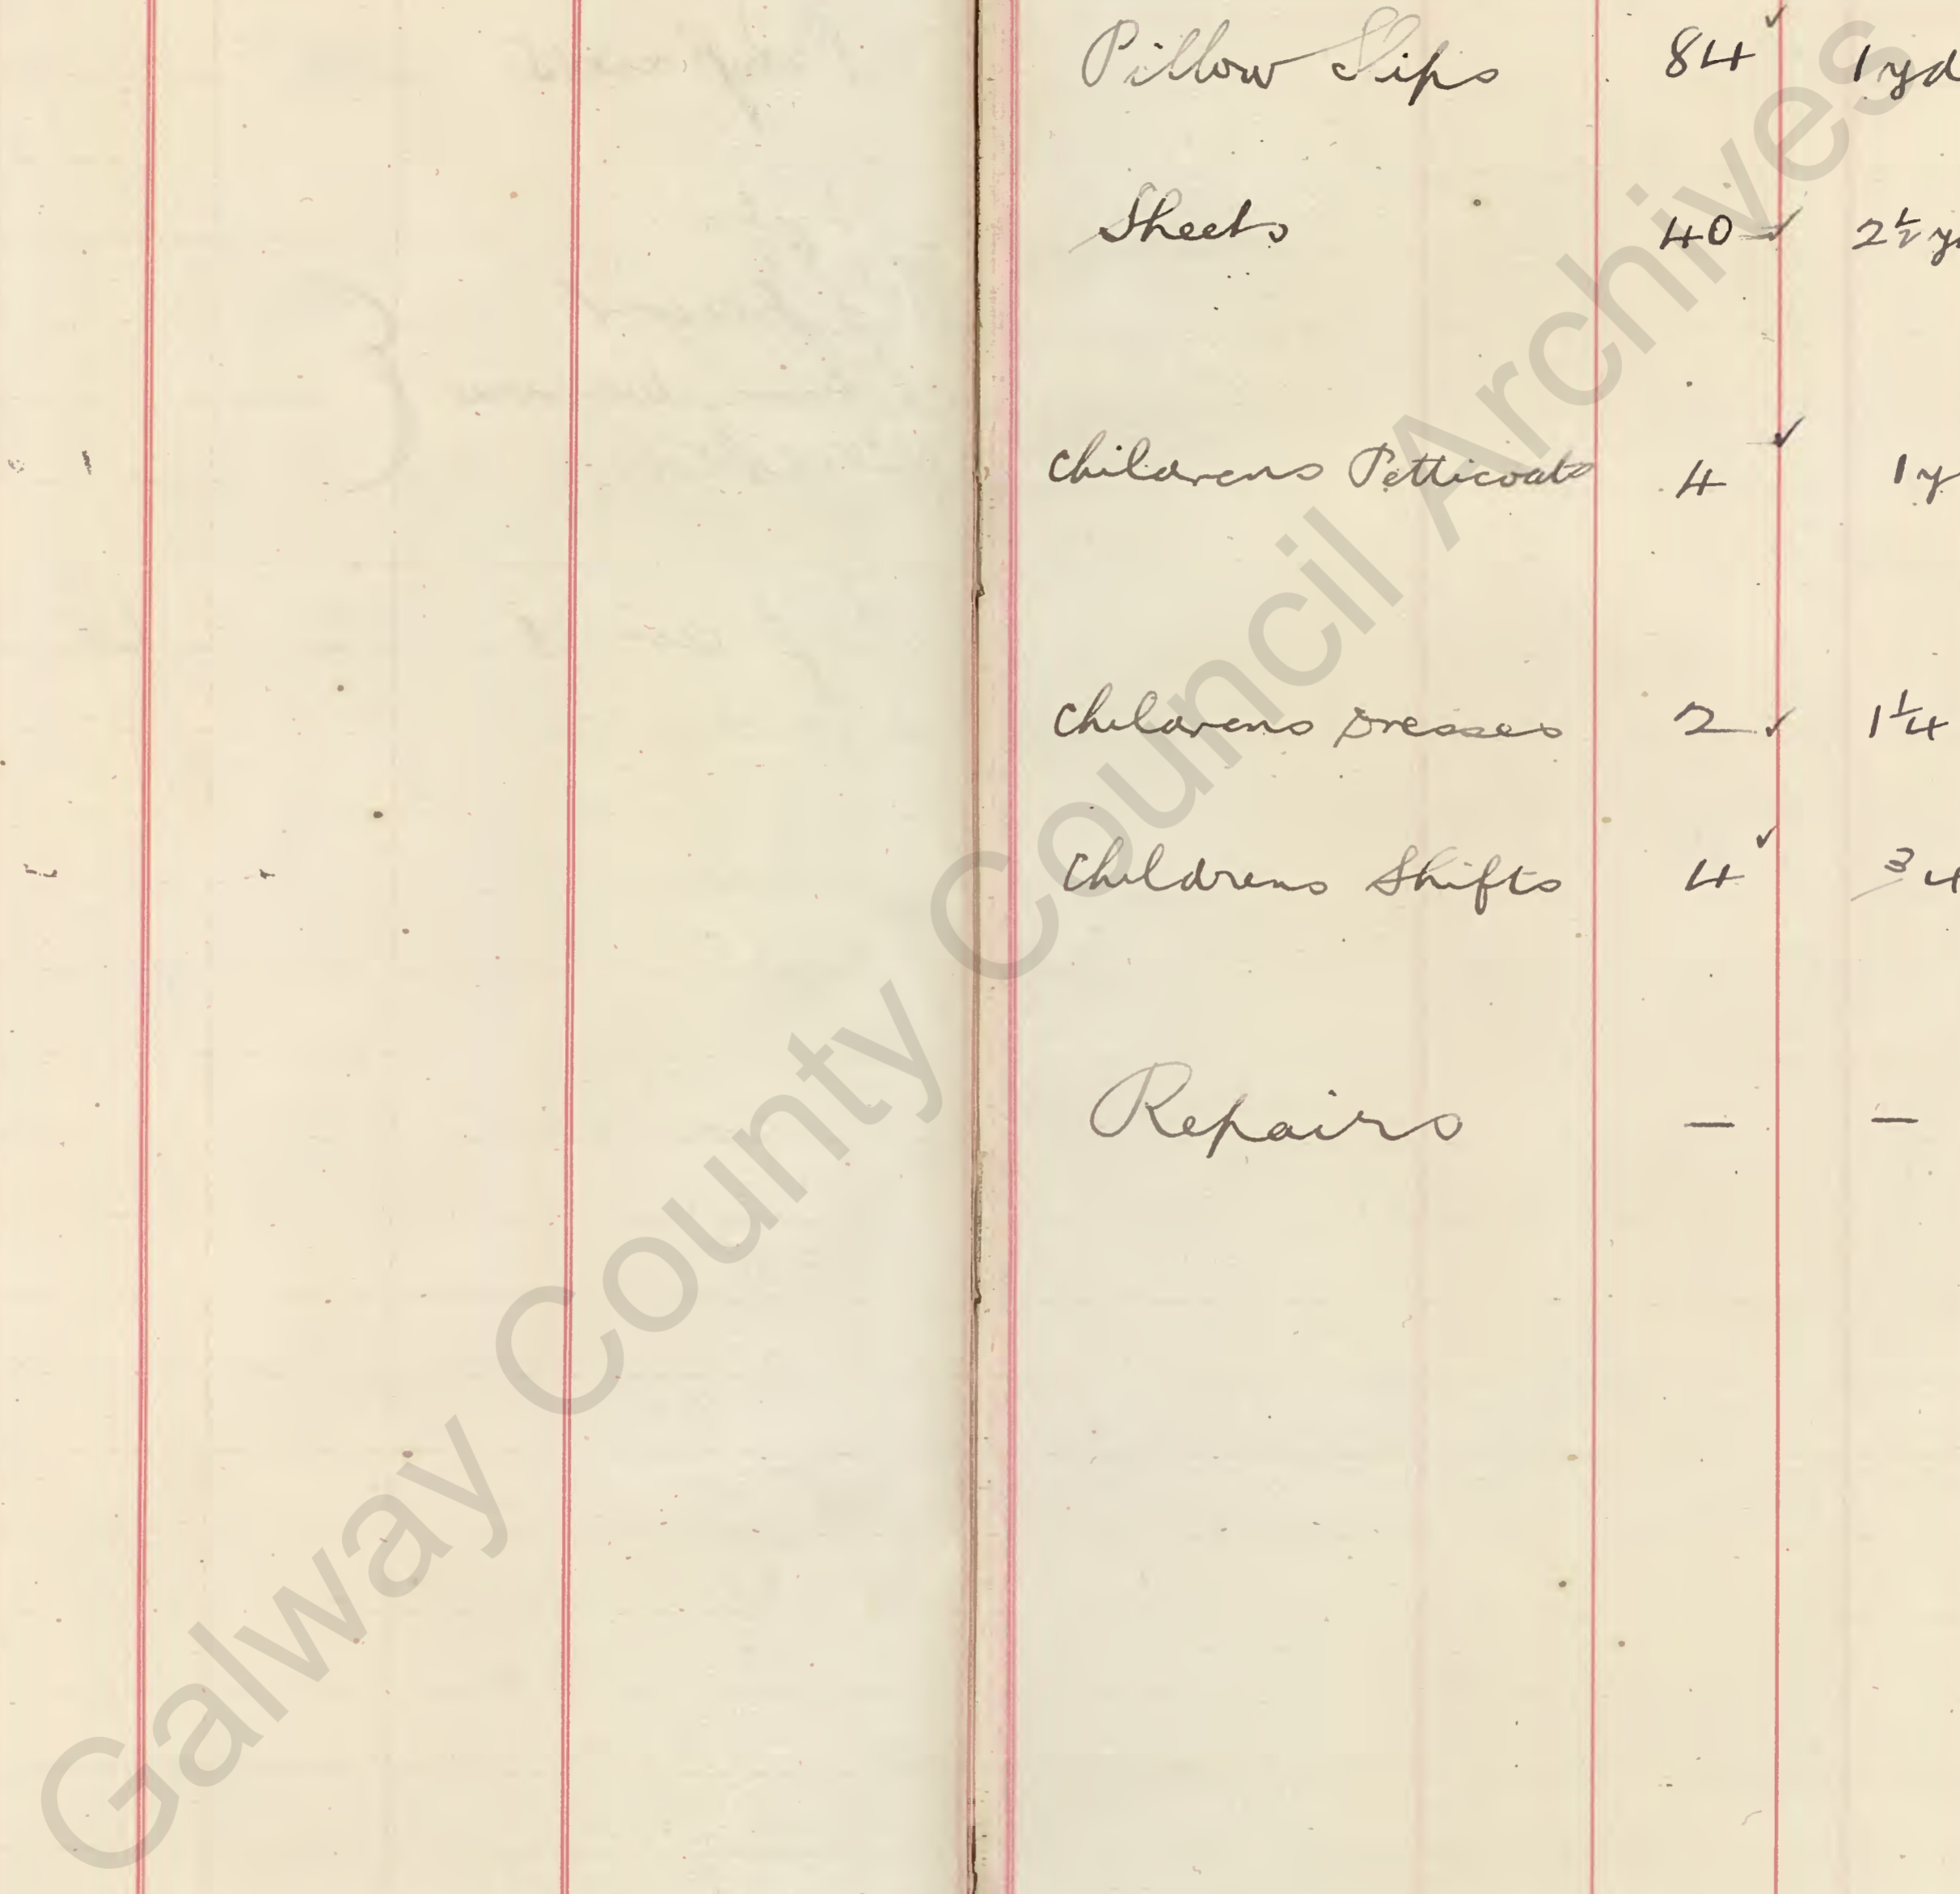 Pillow Slips 84 ✓ 1 yd
Sheets 40 ✓ 2½ yd
Childrens Petticoats 4 ✓ 1 y
Childrens Dresses 2 ✓ 1¼
Childrens Shifts 4 ✓ 3/4
Repairs — —
Galway County Council Archives